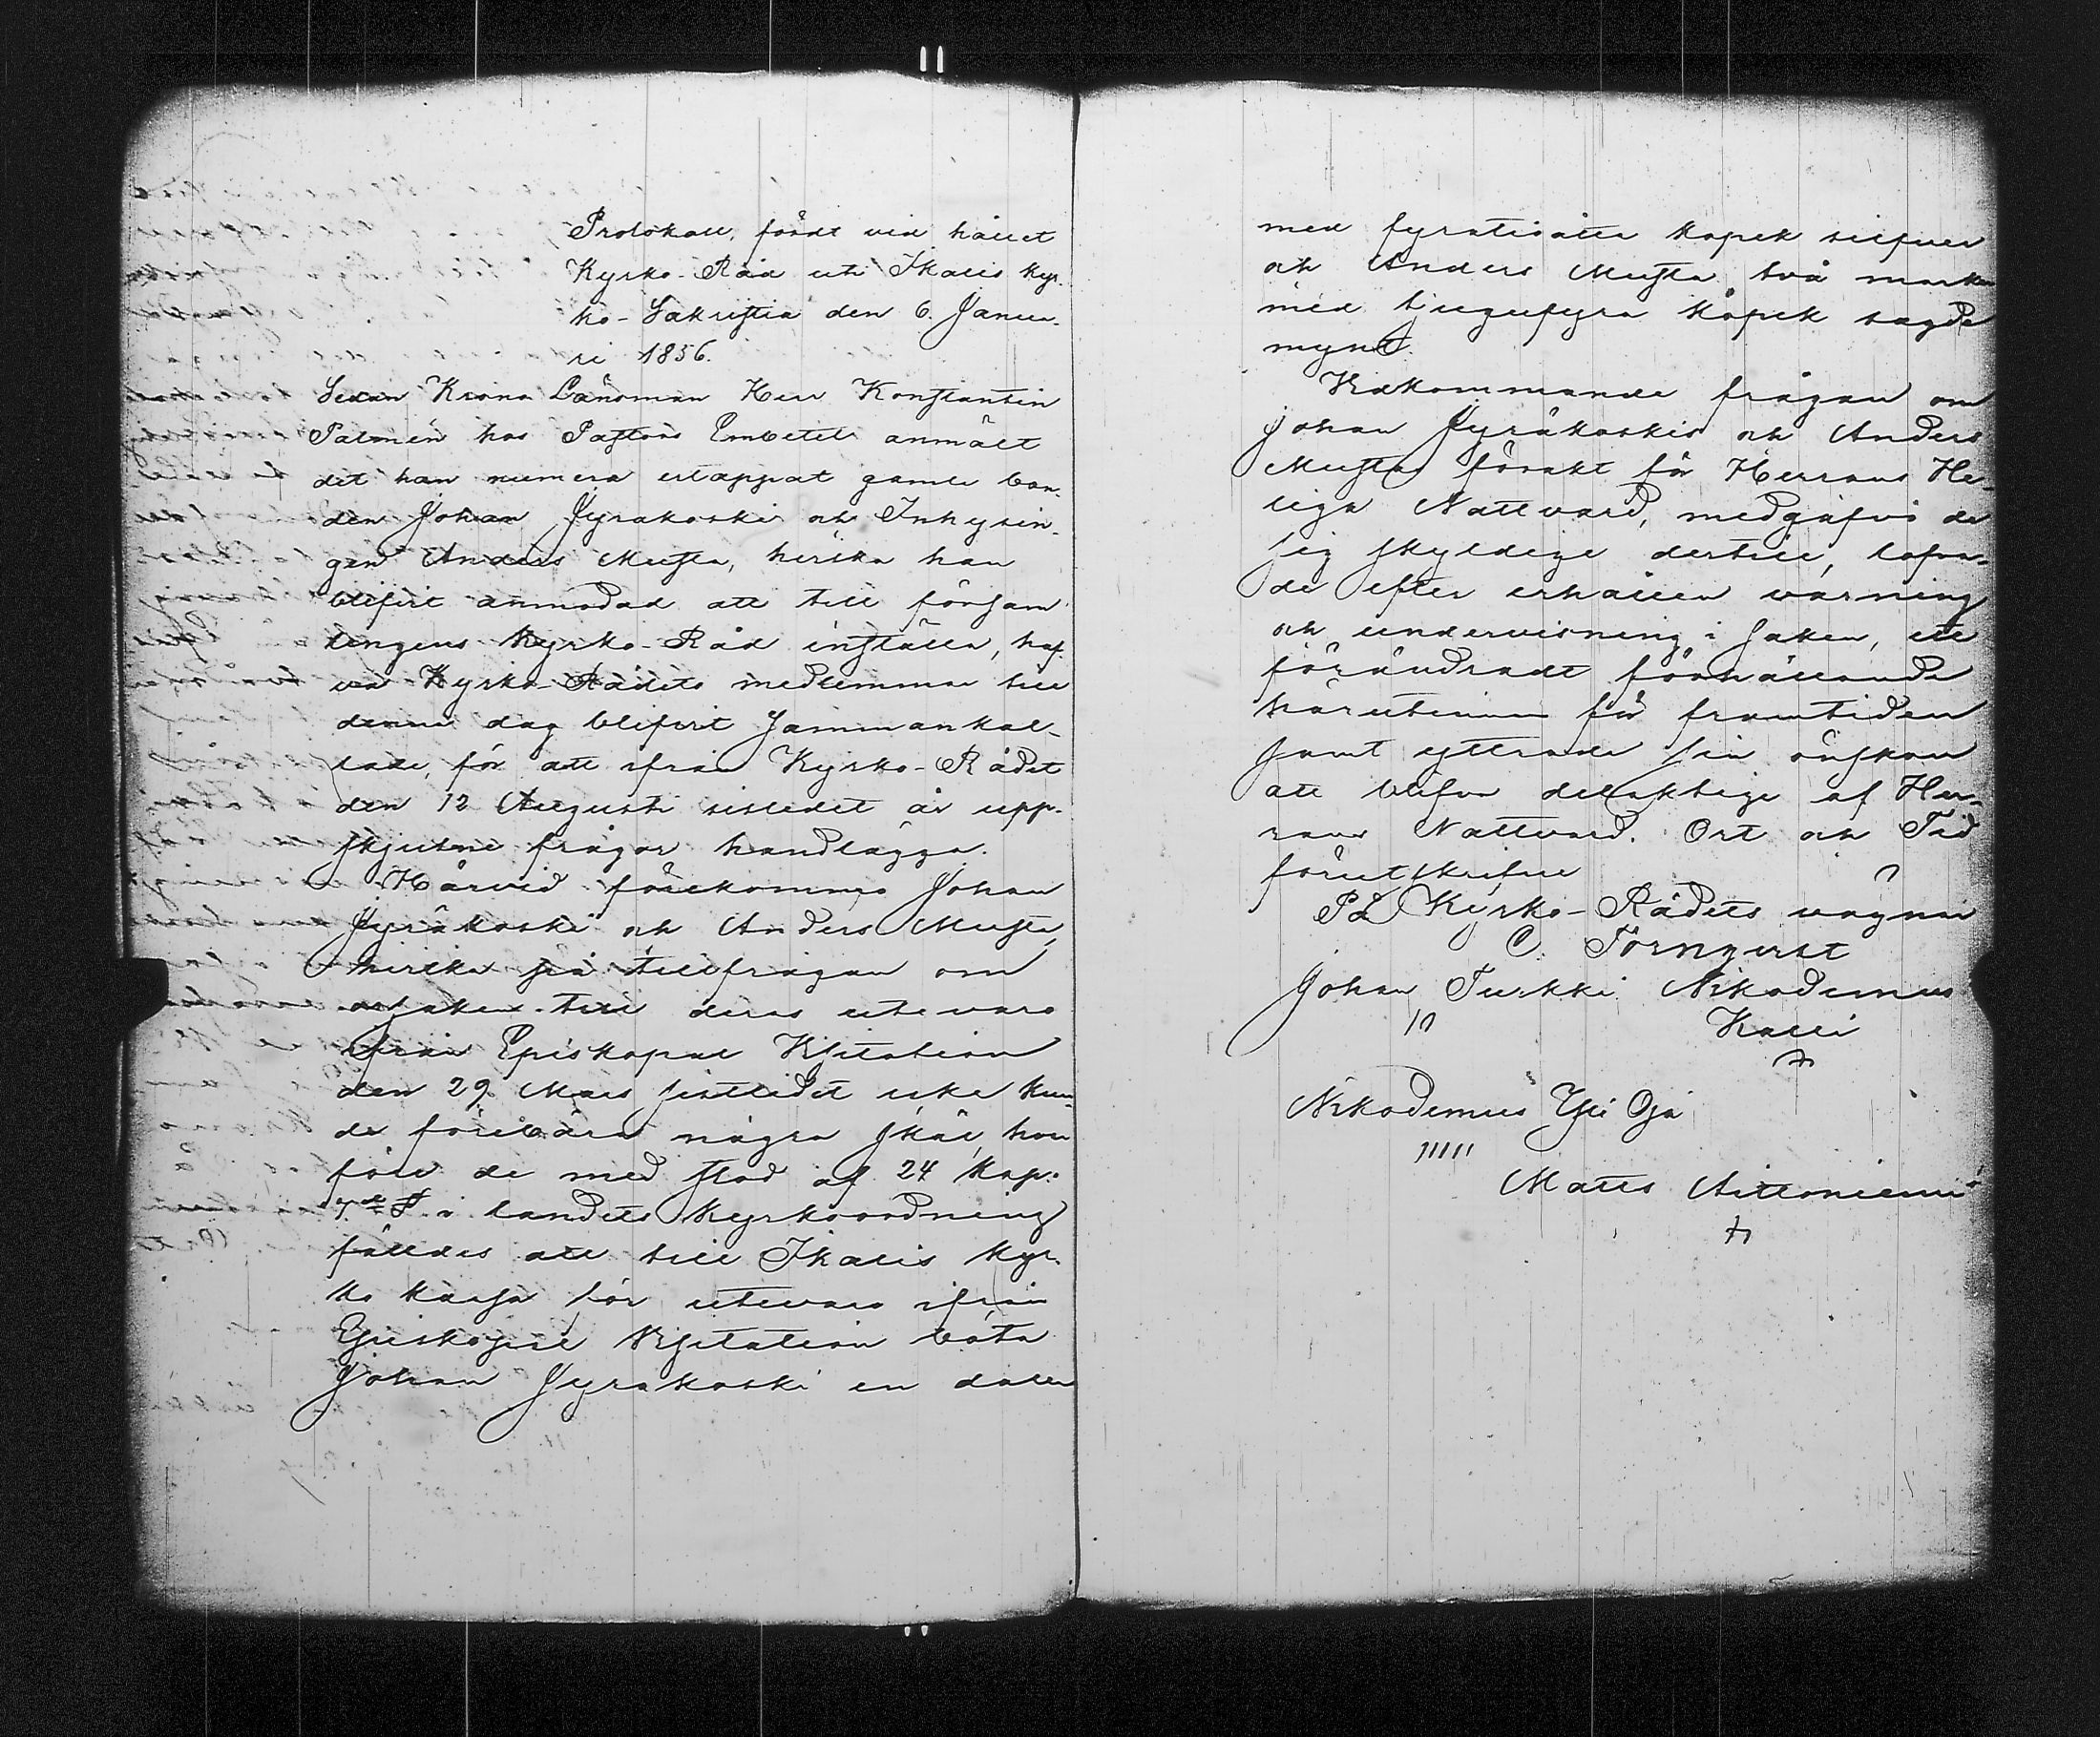 Protokoll, fördt vid hållet
Kyrko-Råd uti Ikalis Kyr-
ko-Sakristia den 6. Janua-
ri 1856.
Sedan Krono Länsman Herr Konstantin
Palmén hos Pastors Embetet anmält
det han numera ertappat gamle bon-
den Johan Jyräkoski och Inhysin-
gen Anders Musta, hvilka han
blifvit anmodad att till försam-
lingens Kyrko-Råd inställa, haf-
va Kyrko-Rådets medlemmar till
denne dag blifvit samman kal-
lade, för att ifrån Kyrko-Rådet
den 12 Augusti sistledet år upp-
skjutne frågor handlägga.
Härvid förekommo Johan
Jyräkoski och Anders Musta,
hvilka på tillfrågan om
orsaken till deras utevaro
ifrån Episkopal Visitation
den 29 Mars sistledet icke kun-
de förebära några skäl, hvar-
före de med stöd af 24 Kap:
7.de § i landets Kyrkoordning
fälldes att till Ikalis Kyr-
ko kassa för utevaro ifrån
Episkopal Visitation böta
Johan Jyräkoski en daler
med fyratioåtta kopek silfver
och Anders Musta två marker
med tjugufyra kopek sagde
mynt.
Vidkommande frågan om
Johan Jyräkoskis och Anders
Mustas förakt för Herrans He-
liga Nattvard, medgåfvo de
sig skyldige dertill, lofvan-
de efter erhållen varning
och undervisning i saken, ett
förändradt förhållande
härutinnan för framtiden
samt yttrade sin önskan
att blifva delaktige af Her-
rans Nattvard. Ort och Tid
förut skrifne
På Kyrko-Rådets vägnar
C. Törnqvist
Johan Turkki Nikodemus
Kalli
Nikodemus Yli Oja
Matts Aittoniemi